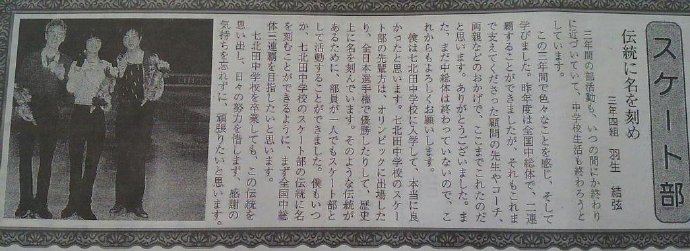 スケート部
伝統に名を刻め
三年四組　羽生　結弦
三年間の部活動も、いつの間にか終わり
に近づいていて、中学校生活も終わろうと
しています。
この三年間で色々なことを感じ、そして
学びました。昨年度は全国中総体で、二連
覇することができましたが、それもこれま
で支えてくださった顧問の先生やコーチ、
両親などのおかげで、ここまでこれたのだ
と思います。ありがとうございました。ま
た、まだ中総体は終わっていないので、こ
れからもよろしくお願いします。
僕は七北田中学校に入学して、本当に良
かったと思います。七北田中学校のスケー
ト部の先輩方は、オリンピックに出場した
り、全日本選手権で優勝したりして、歴史
上に名を刻んでいます。そのような伝統が
あるために、部員が一人でもスケート部と
して活動することができました。僕もいつ
か、七北田中学校のスケート部の伝統に名
を刻むことができるように、まず全国中総
体三連覇を目指したいと思います。
七北田中学校を卒業しても、この伝統を
思い出し、日々の努力を惜しまず、感謝の
気持ちを忘れずに、頑張りたいと思います。